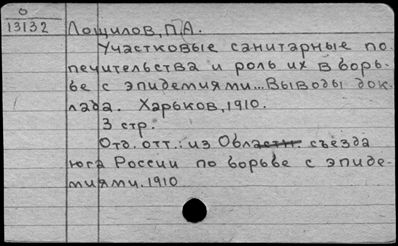 О
13132
Лощилов, П.А.
Участковые санитарные по-
печительства и роль их в борь-
бе с эпидемиями... Выводы док-
лада. Харьков, 1910.
3 стр.
Отд. отт.: из Области. съезда
юга России по борьбе с эпиде-
миями. 1910